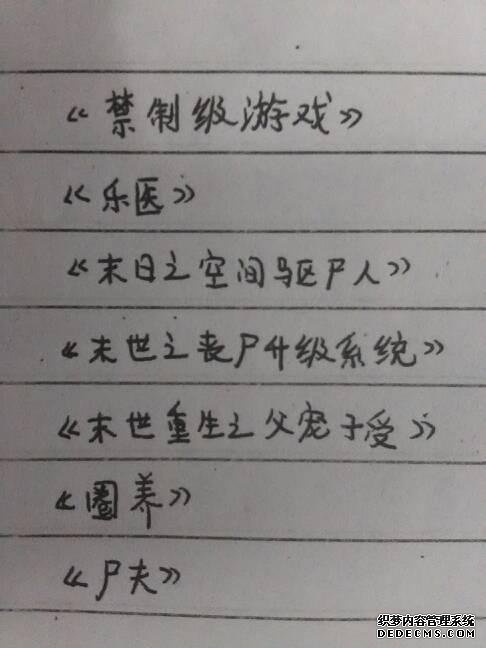 《禁制级游戏》
《乐医》
《末日之空间驱尸人》
《末世之丧尸升级系统》
《末世重生之父宠子受》
《圈养》
《尸夫》
织梦内容管理系统
DEDECMS.COM